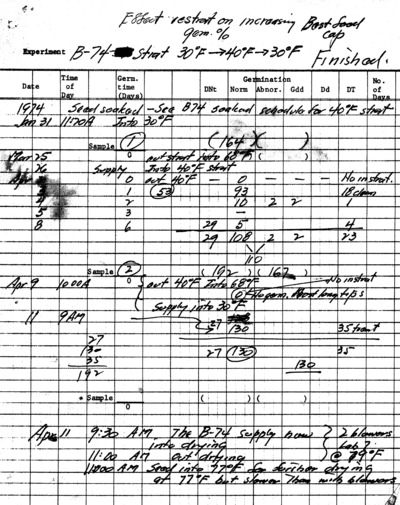 Effect restrat on increasing Best food
germ. % cap
Experiment B-74 Strat 30°F→40°F→30°F Finished.
Date Time of Day Germ. time (Days) Germination No. of Days
DNt Norm Abnor. Gdd Dd DT
1974 Seed soaked - See B74 soaked schedule for 40°F strat
Jan 31 11:70A Into 30°F
Sample 1 (164)( )
Mar 25 0 out strat into 68°F ( )
26 Supply Into 40°F strat
0 out 40°F - 0 - - No in strat.
1 53 93 18
4 2 10 2 2 1
5 3 -
8 6 29 5 4
29 108 2 2 23
110
Sample 2 (192) (167)
Apr 9 10:00A 0 out 40°F Into 68°F No in strat
No germ.
Supply into 30°F
11 9AM 27 130 35
27
130 27 130 35
35 130
192
* Sample ( ) ( )
0
Apr 11 9:30 AM The B-74 supply now 2 blowers
into drying Lab 7.
11:00 AM Out drying @ 79°F
11:00 AM Seed into 77°F for further drying
at 77°F but slower than with blowers